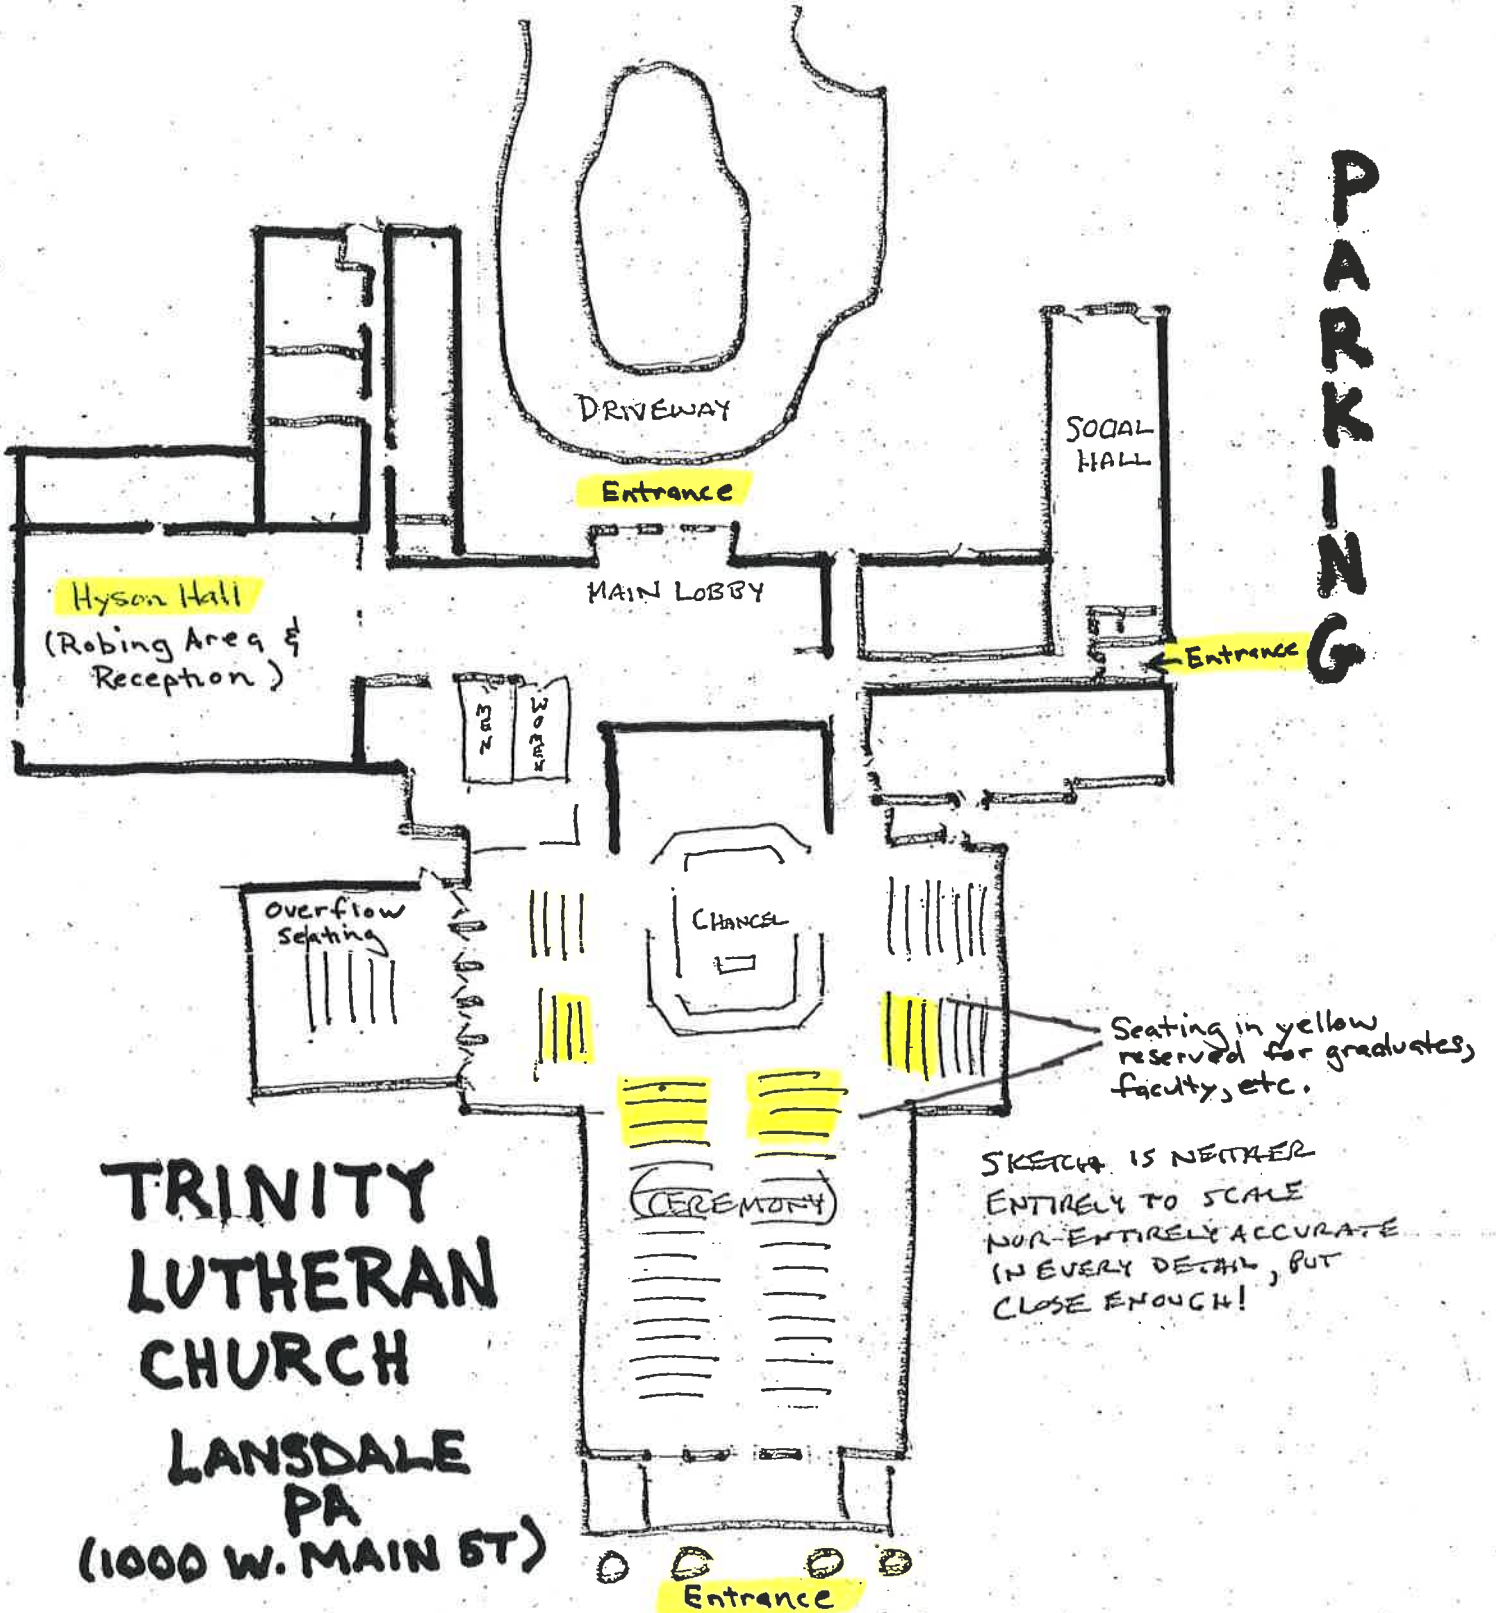 PARKING
DRIVEWAY
SOCIAL
HALL
Entrance
MAIN LOBBY
Hyson Hall
(Robing Area &
Reception)
← Entrance
MEN
WOMEN
CHANCEL
Overflow
Seating
Seating in yellow
reserved for graduates,
faculty, etc.
(CEREMONY)
SKETCH IS NEITHER
ENTIRELY TO SCALE
NOR ENTIRELY ACCURATE
IN EVERY DETAIL, BUT
CLOSE ENOUGH!
TRINITY
LUTHERAN
CHURCH
LANSDALE
PA
(1000 W. MAIN ST)
Entrance